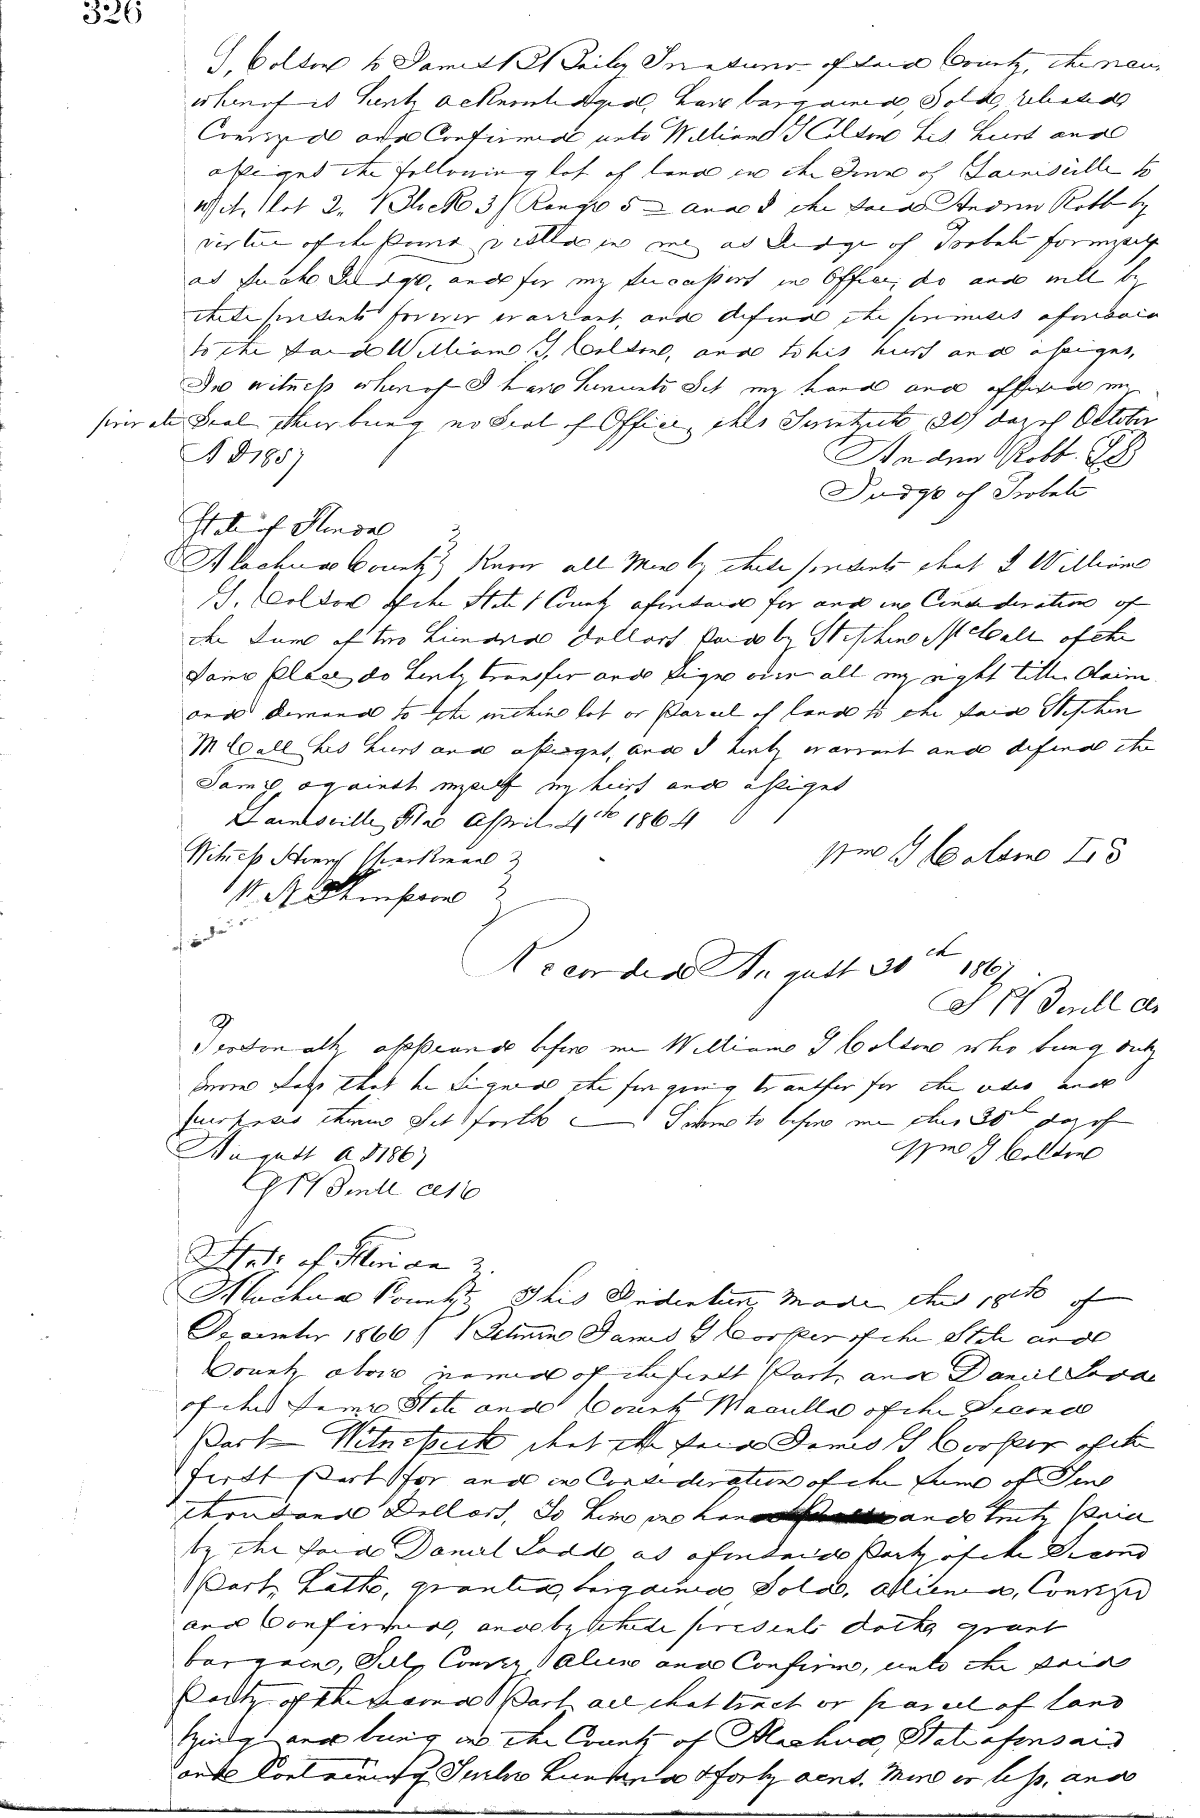 326
G. Colson to James B Bailey Treasurer of said County, the
whereof is hereby acknowledged, have bargained, Sold, released
Conveyed and Confirmed unto William G Colson his heirs and
assigns the following lot of land in the Town of Gainisville to
wit, Lot 2, Block 3 / Range 5 = and I the said Andrew Robb by
virtue of the power vested in me as Judge of Probate for myself
as such Judge, and for my Successors in Office, do and will by
these presents forever warrant, and defend the premises aforesaid
to the said William G. Colson, and to his heirs and assigns,
In witness whereof I have hereunto Set my hand and affixed my
private Seal there being no Seal of Office, this Twentyeth 20) day of October
A D 1857
Andrew Robb. LS
Judge of Probate
State of Florida }
Alachua County } Know all Men by these presents that I William
G. Colson of the State & County aforesaid for and in Consideration of
the Sum of two hundred dollars paid by Stephen McCall of the
Same Place, do hereby transfer and Sign over all my right title Claim
and demand to the within lot or Parcel of land to the said Stephen
McCall his heirs and assigns, and I hereby warrant and defend the
Same against myself my heirs and assigns
Gainsville, Fla April 4th 1864
Wm G Colson LS
Witness Henry }
W. A Thompson }
Recorded August 30th 1867
Personally appeared before me William G Colson who being duly
sworn Says that he Signed the foregoing transfer for the uses and
purposes therein Set forth — Sworn to before me this 30th day of
August A D 1867
Wm G Colson
State of Florida }
Alachua County } This Indenture, Made this 18th of
December 1866 / Between James G Cooper of the State and
County above named of the first Part, and Daniel Ladd
of the Same State and County Waculla of the Second
Part — Witnesseth that the said James G Cooper of the
first Part for and in Consideration of the Sum of
thousand Dollars, To him in hand and truly Paid
by the said Daniel Ladd as aforesaid Party of the Second
Part, hath, granted, bargained, Sold, aliened, Conveyed
and Confirmed, and by these presents doth grant
bargain, Sell, Convey, Alien and Confirm, unto the said
Party of the second Part all that tract or parcel of land
lying and being in the County of Alachua, State aforesaid
and Containing Twelve hundred & forty acres. More or less, and